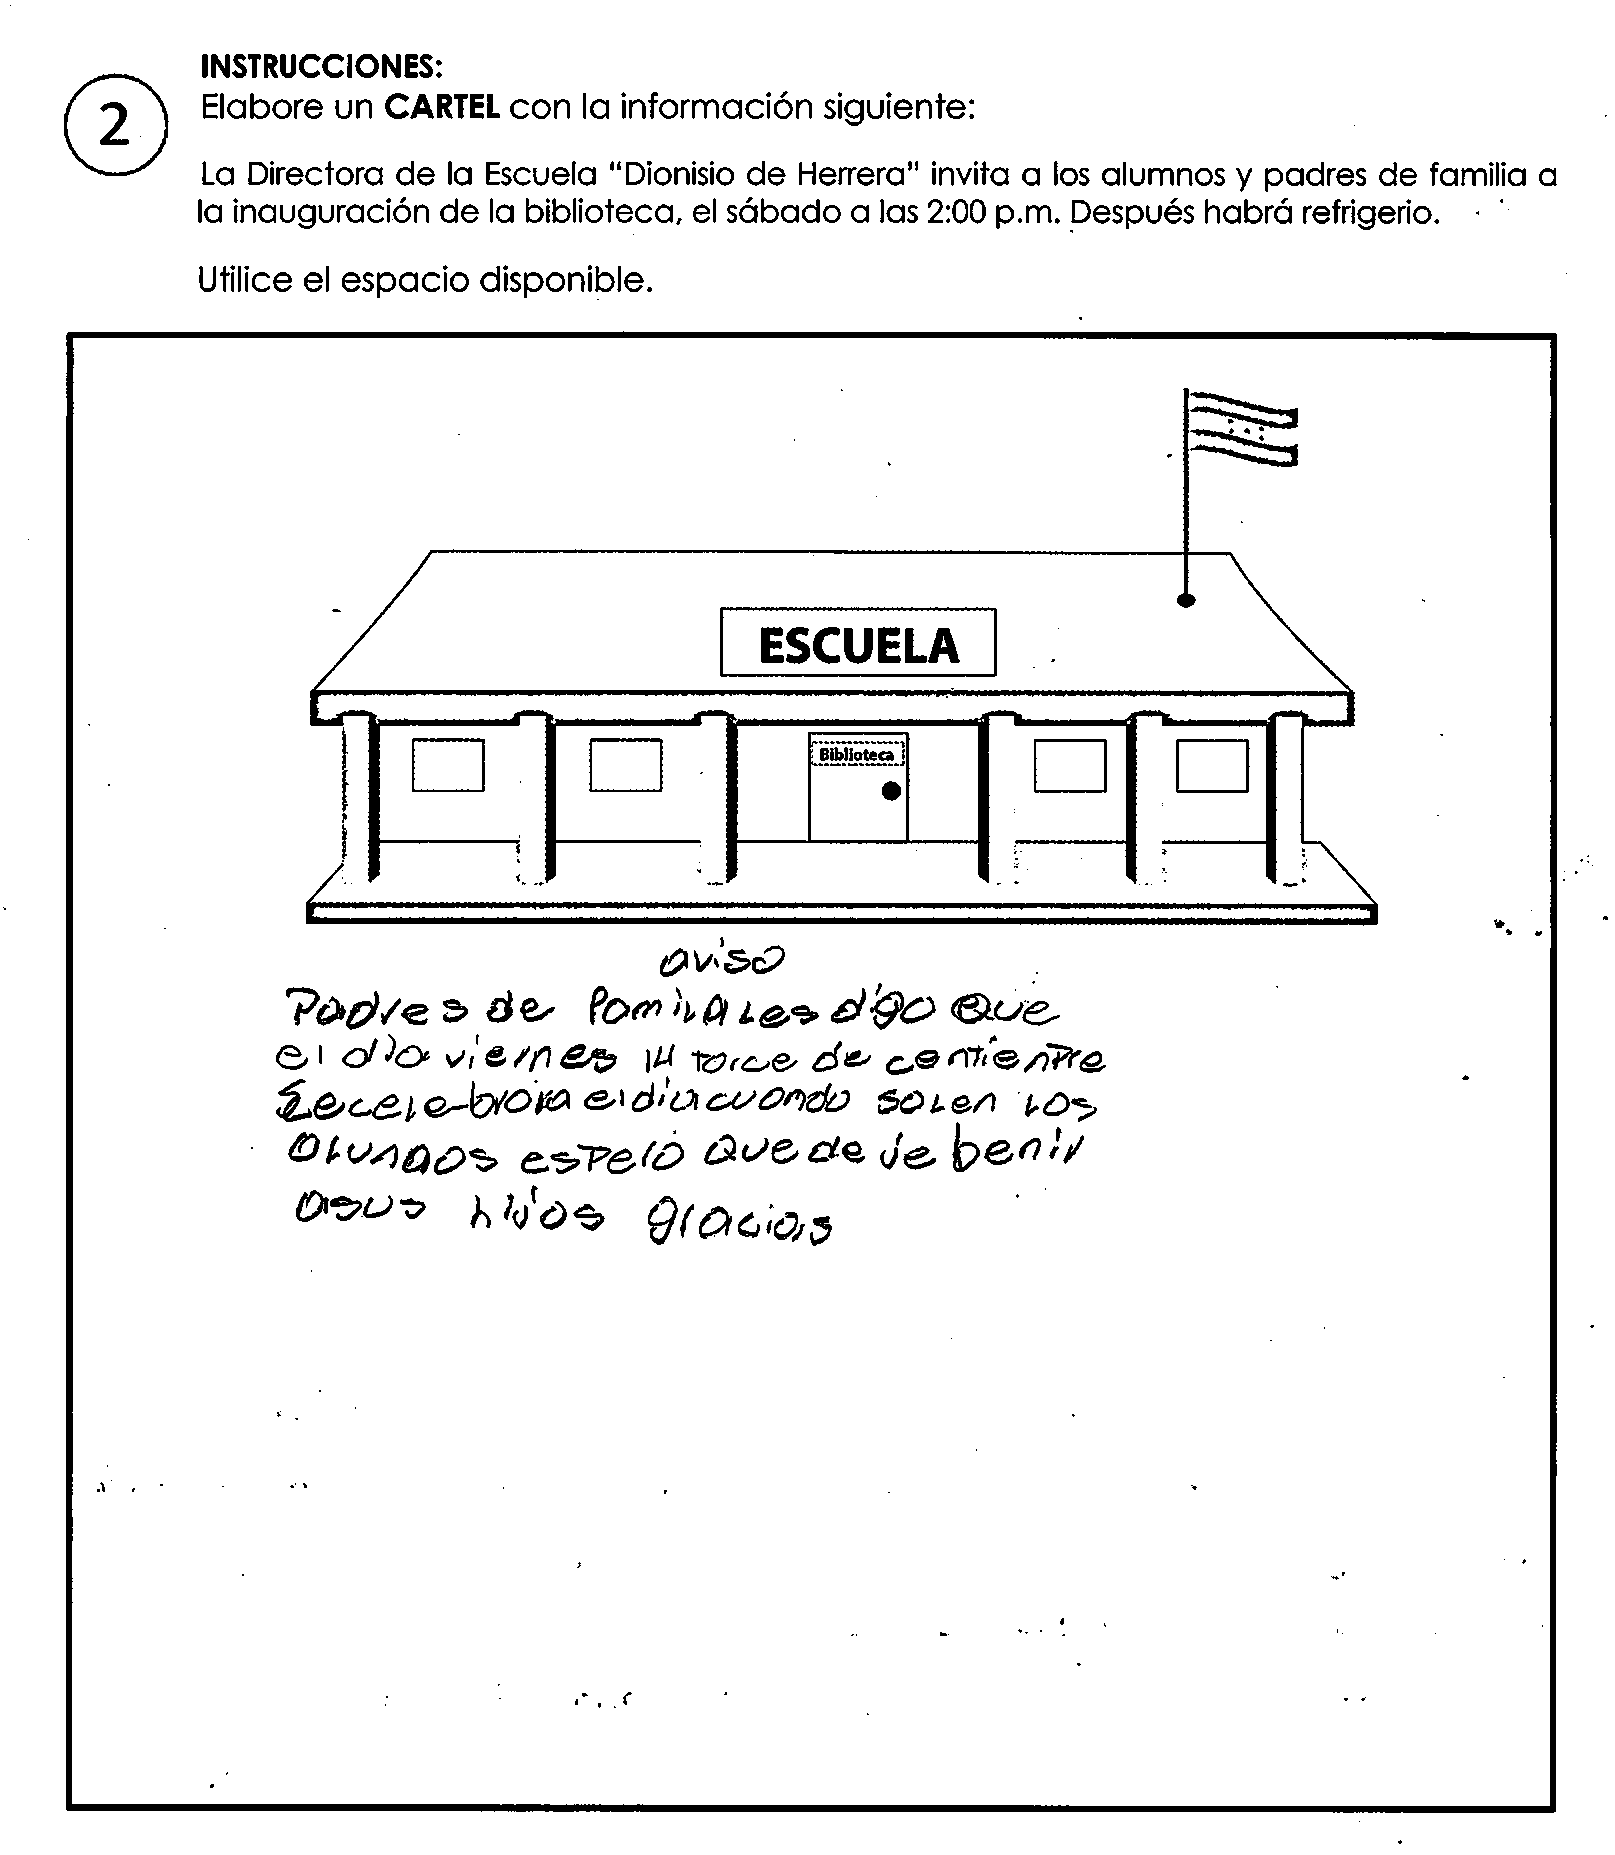 INSTRUCCIONES:
2
Elabore un CARTEL con la información siguiente:
La Directora de la Escuela "Dionisio de Herrera" invita a los alumnos y padres de familia a
la inauguración de la biblioteca, el sábado a las 2:00 p.m. Después habrá refrigerio.
Utilice el espacio disponible.
ESCUELA
Biblioteca
aviso
Padres de familia les digo que
el dia viernes 14 torce de centienpre
Se celebrara el dia cuando salen los
alunnos espero que deje benir
asus hijos gracias